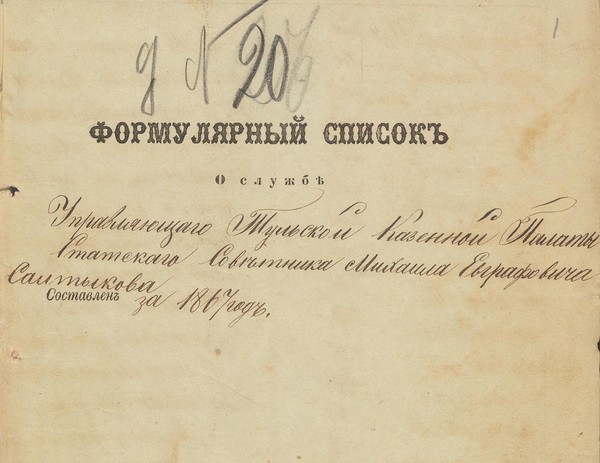 1
д № 20
ФОРМУЛЯРНЫЙ СПИСОКЪ
О службѣ
Управляющаго Тульской Казенной Палаты
Статскаго Совѣтника Михаила Евграфовича
Салтыкова
Составленъ за 1867 годъ.